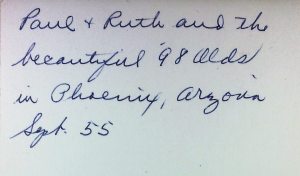 Paul & Ruth and the
beeautiful '98 Olds
in Phoenix, Arzona
Sept. 55